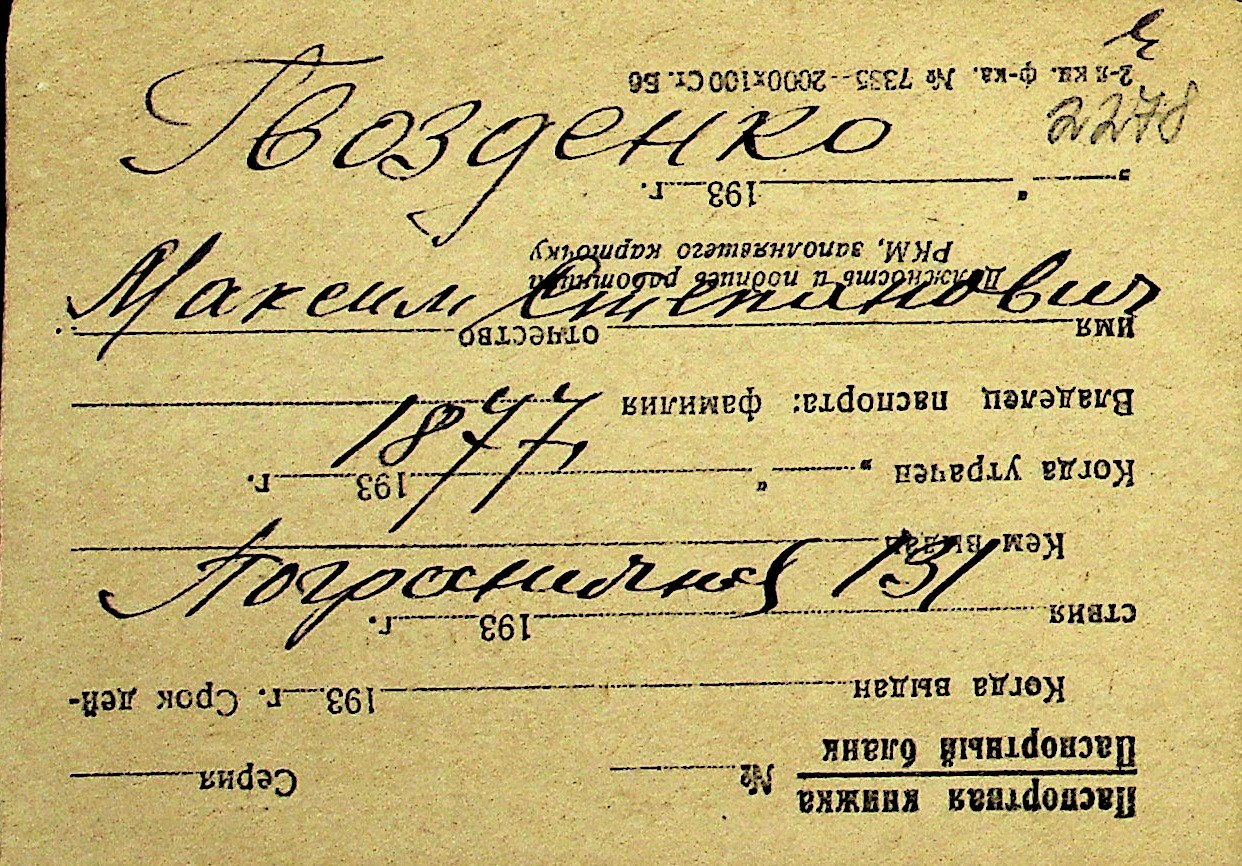 Гвозденко
2278
Максим Степанович
1877
Пограничная 131
Паспортная книжка
Паспортный бланк № Серия
Когда выдан 193 г. Срок дей-
ствия 193 г.
Кем выдан
Когда утрачен „ “ 193 г.
Владелец паспорта: фамилия
имя отчество
Должность и подпись работника
РКМ, заполнявшего карточку
„ “ 193 г.
2-я кн. ф-ка. № 7335—2000х100 Ст. Б6